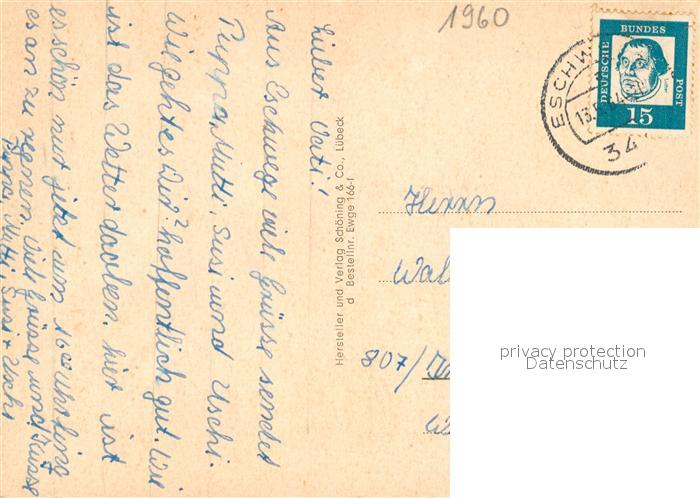 1960
DEUTSCHE BUNDES POST
15
ESCHW
13.
34
Lieber Vati!
Aus Eschwege viele Grüsse sendet
Puppa, Mutti, Susi und Uschi.
Wie geht es Dir? hoffentlich gut. Wie
ist das Wetter droben. hier ist
es schön nur jetzt um 16 Uhr fing
es an zu regnen. Viele Grüsse und Küsse
Mutti, Susi + Uschi
Hersteller und Verlag Schöning & Co., Lübeck
d Bestellnr. Ewge 166-1
Herrn
Wal
807/
privacy protection
Datenschutz